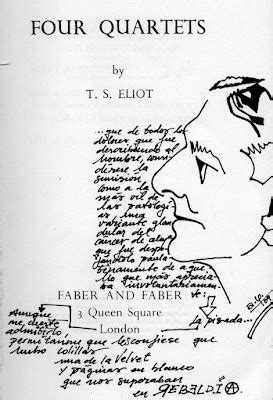 FOUR QUARTETS
by
T. S. ELIOT
...que de todos los
dolores que fue
describiendo al
hombre, consi-
dérese la
sumisión
como a la
más vil de
las patologí-
as, una
variante glan-
dular del
cancer de alma
que fue despo-
jándolo paula-
tinamente de aque-
llo que más aprecia-
ba involuntariamen-
te:
FABER AND FABER
3 Queen Square
London
La pisada...
Aunque
me cueste
admitirlo,
permítanme que les confiese que
hubo colillas
una de la Velvet
y páginas en blanco
que nos superaban
en REBELDÍA